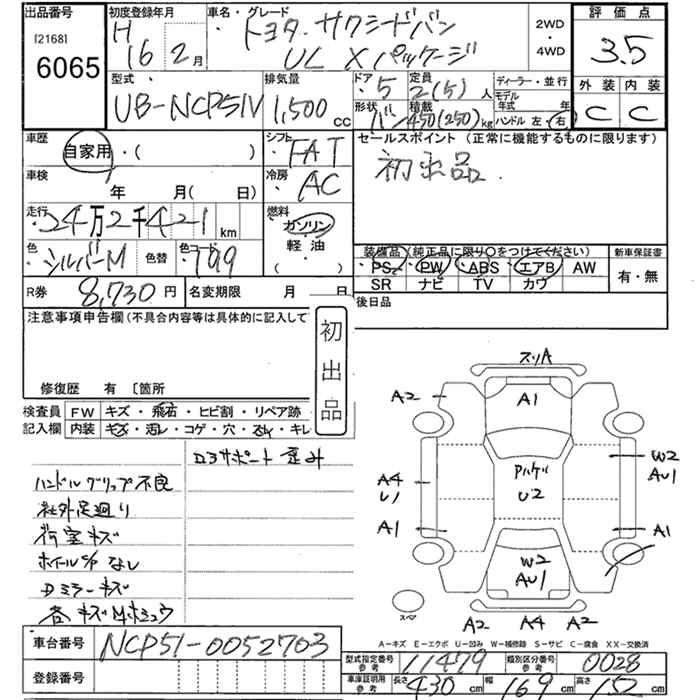 出品番号 初度登録年月 車名・グレード 評価点
[2168] H トヨタ サクシードバン 2WD
6065 16年2月 UL Xパッケージ ・ 3.5
4WD
型式 排気量 ドア 定員 ディーラー・並行 外装 内装
UB-NCP51V 1,500cc 5 2(5)人 モデル年式 年 C C
形状 積載 ハンドル 左・右
バン 450(250)kg
車歴 シフト セールスポイント (正常に機能するものに限ります)
自家用・( ) FAT 初出品.
車検 冷房
年 月( 日) AC
走行 燃料
24万2千421km ガソリン
色 色替 色コード 軽油
シルバーM 199 ( )
装備品(純正品に限り○をつけてください) 新車保証書
・PS ・PW ・ABS ・エアB AW 有・無
SR ナビ TV カワ
R券 8,730円 名変期限 月 日 後日品
注意事項申告欄(不具合内容等は具体的に記入して
初出品
修復歴 有 〔箇所
検査員 FW キズ・飛石・ヒビ割・リペア跡
記入欄 内装 キズ・汚レ・コゲ・穴・スレ・キレ
ロアサポート歪み
ハンドルグリップ不良
社外足廻り
荷室キズ
ホイールC/Pなし
Dミラーキズ
各キズ
スリA
A2 A1
W2
AU1
A4
U1
U2
A1 A1
W2
AU1
スペア
A2 A4 A2
A-キズ E-エクボ U-凹み W-補修跡 S-サビ C-腐食 XX-交換済
車台番号 NCP51-0052703
型式指定番号 参考 11479 類別区分番号 参考 0028
登録番号
車庫証明用 参考 長さ 430cm 幅 169cm 高さ 152cm